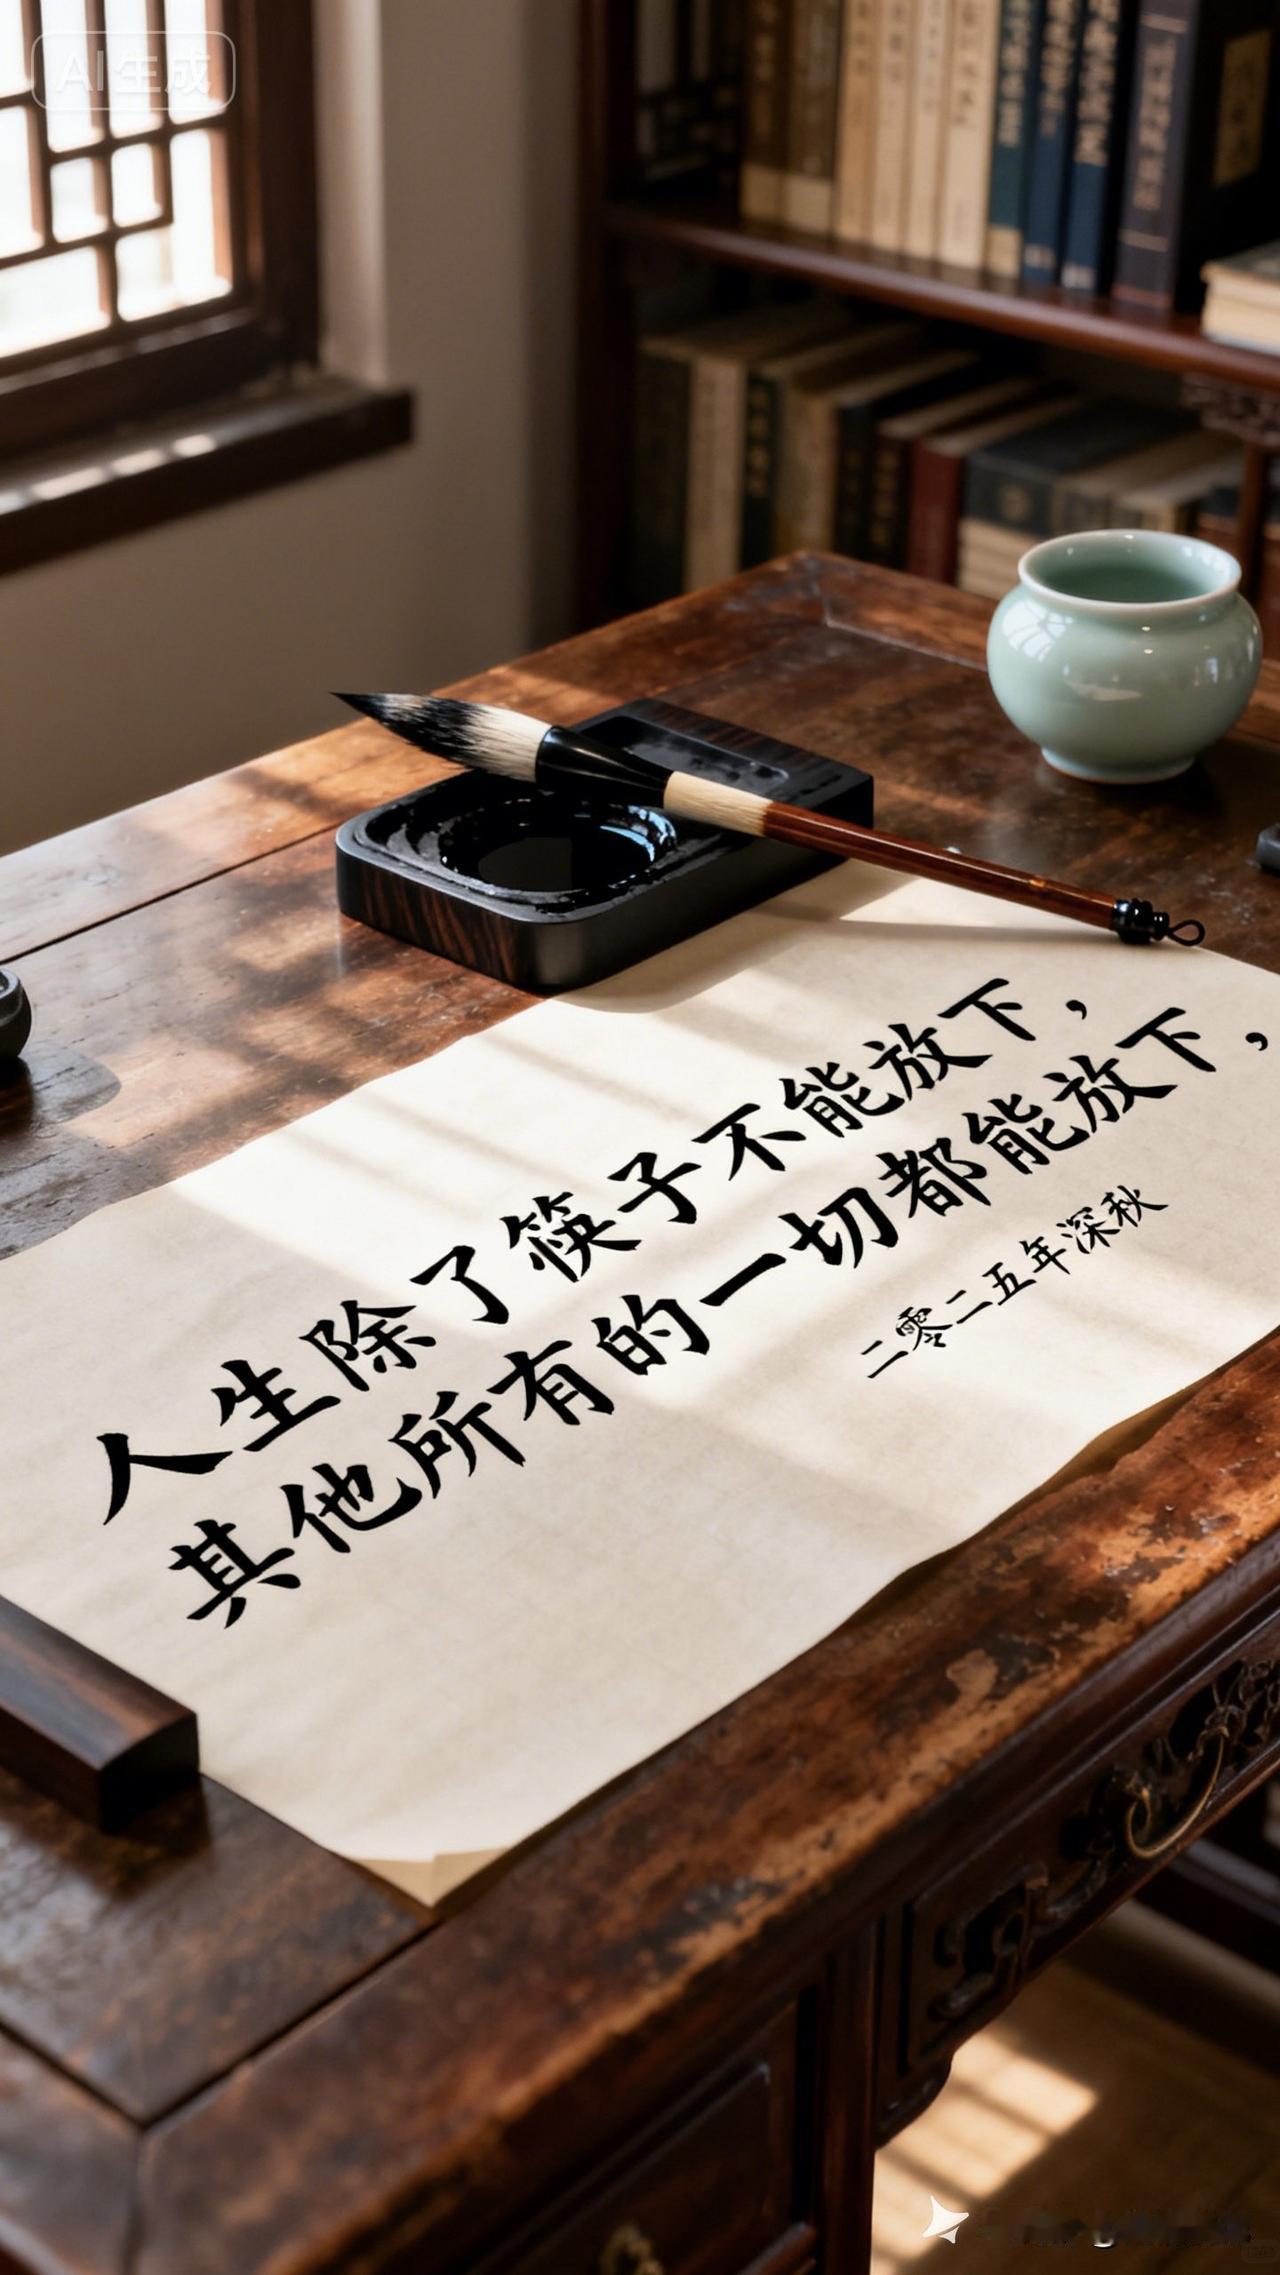 AI生成
人生除了筷子不能放下，
其他所有的一切都能放下，
二零二五年深秋